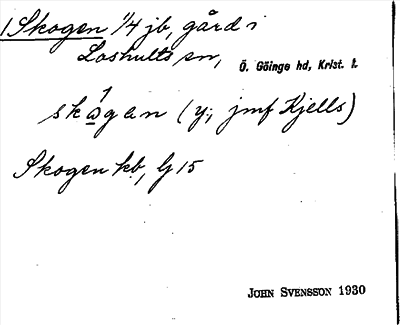 1 Skogen 1/4 jb, gård i
Loshults sn,
Ö. Göinge hd, Krist. l.
skωgan (y; jmf Kjells)
Skogen kb, G 15
JOHN SVENSSON 1930